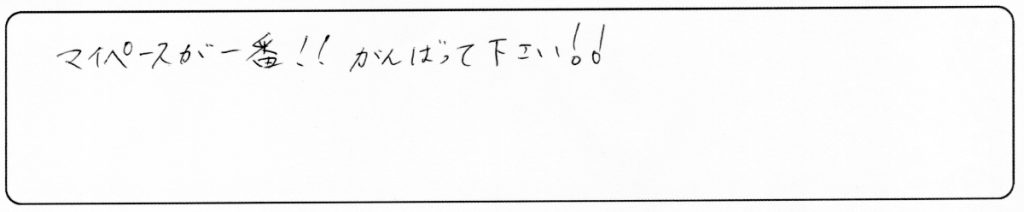 マイペースが一番!! がんばって下さい!!